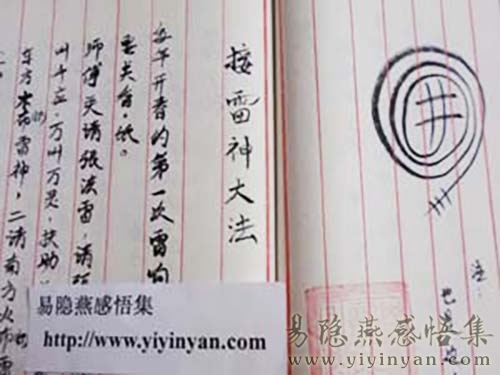 接雷神大法
每年开春的第一次雷响
师傅 请张法雷,请
叫千应,万叫万灵,扶助
东方 雷神,二请南方火
井
注:
也是
易隐燕感悟集
http://www.yiyinyan.com
易隐燕感悟集
www.yiyinyan.com